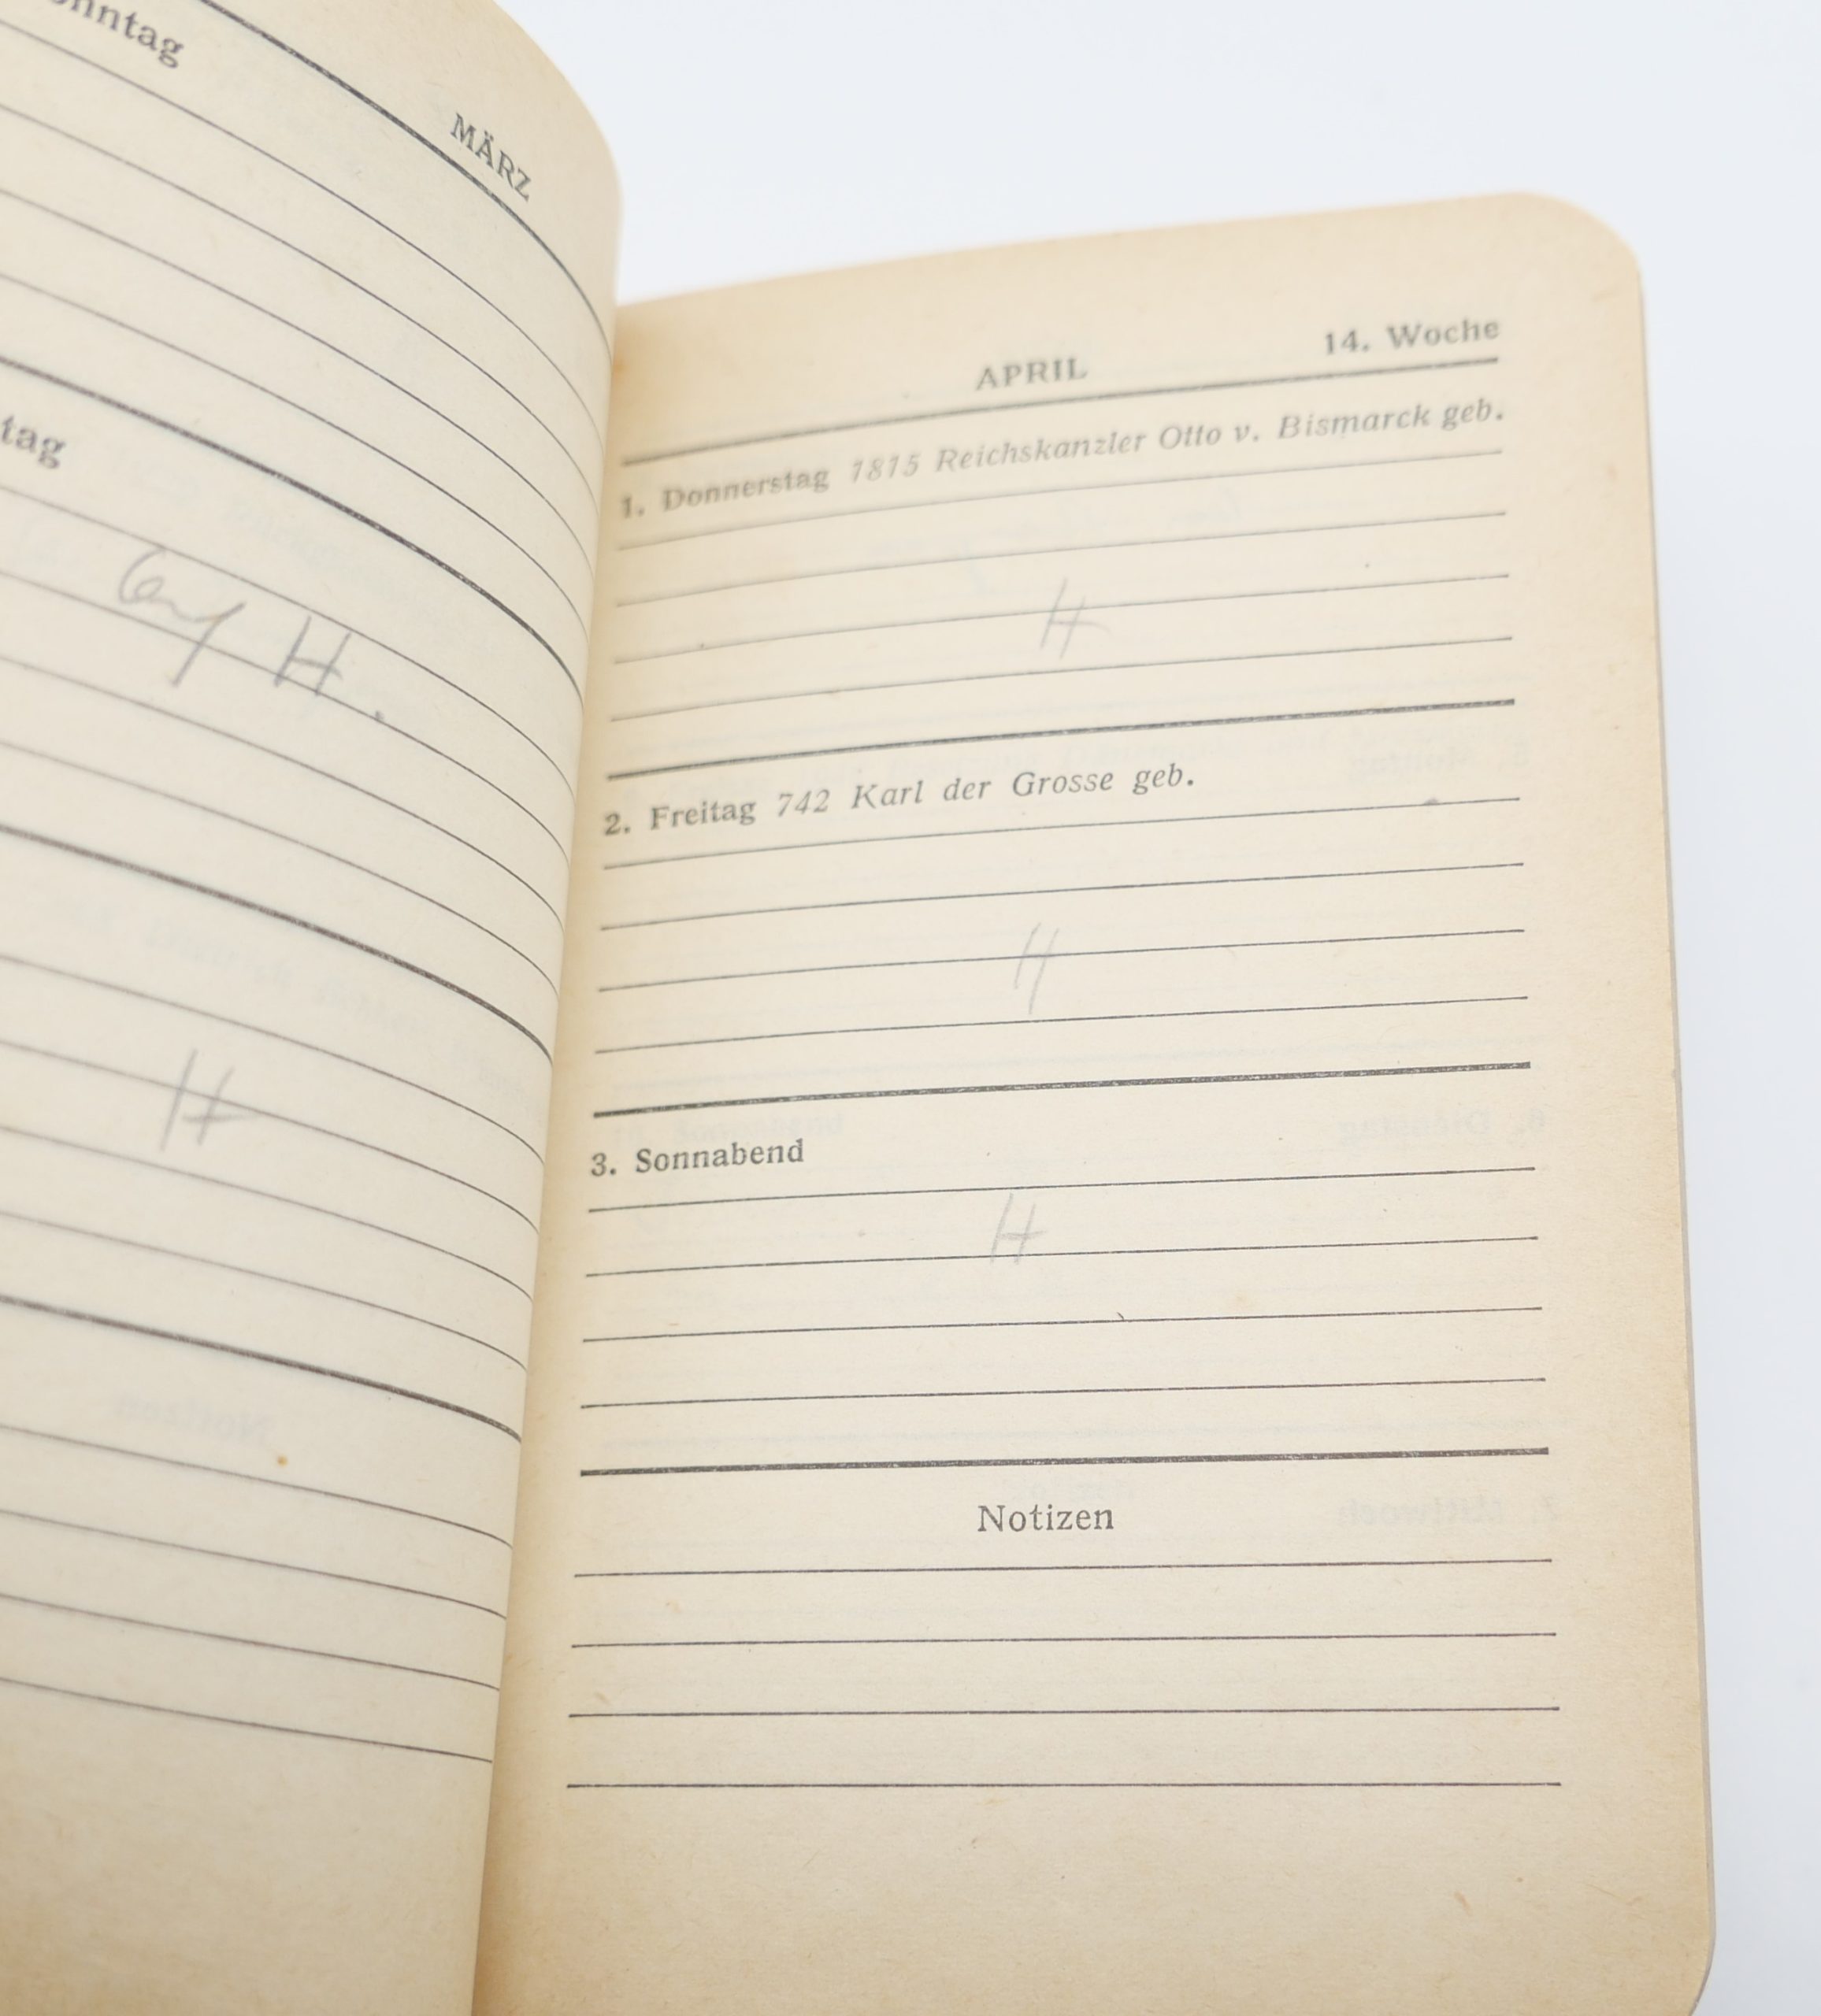 MÄRZ
H.
H
14. Woche
APRIL
1. Donnerstag 1815 Reichskanzler Otto v. Bismarck geb.
H
2. Freitag 742 Karl der Grosse geb.
H
3. Sonnabend
H
Notizen